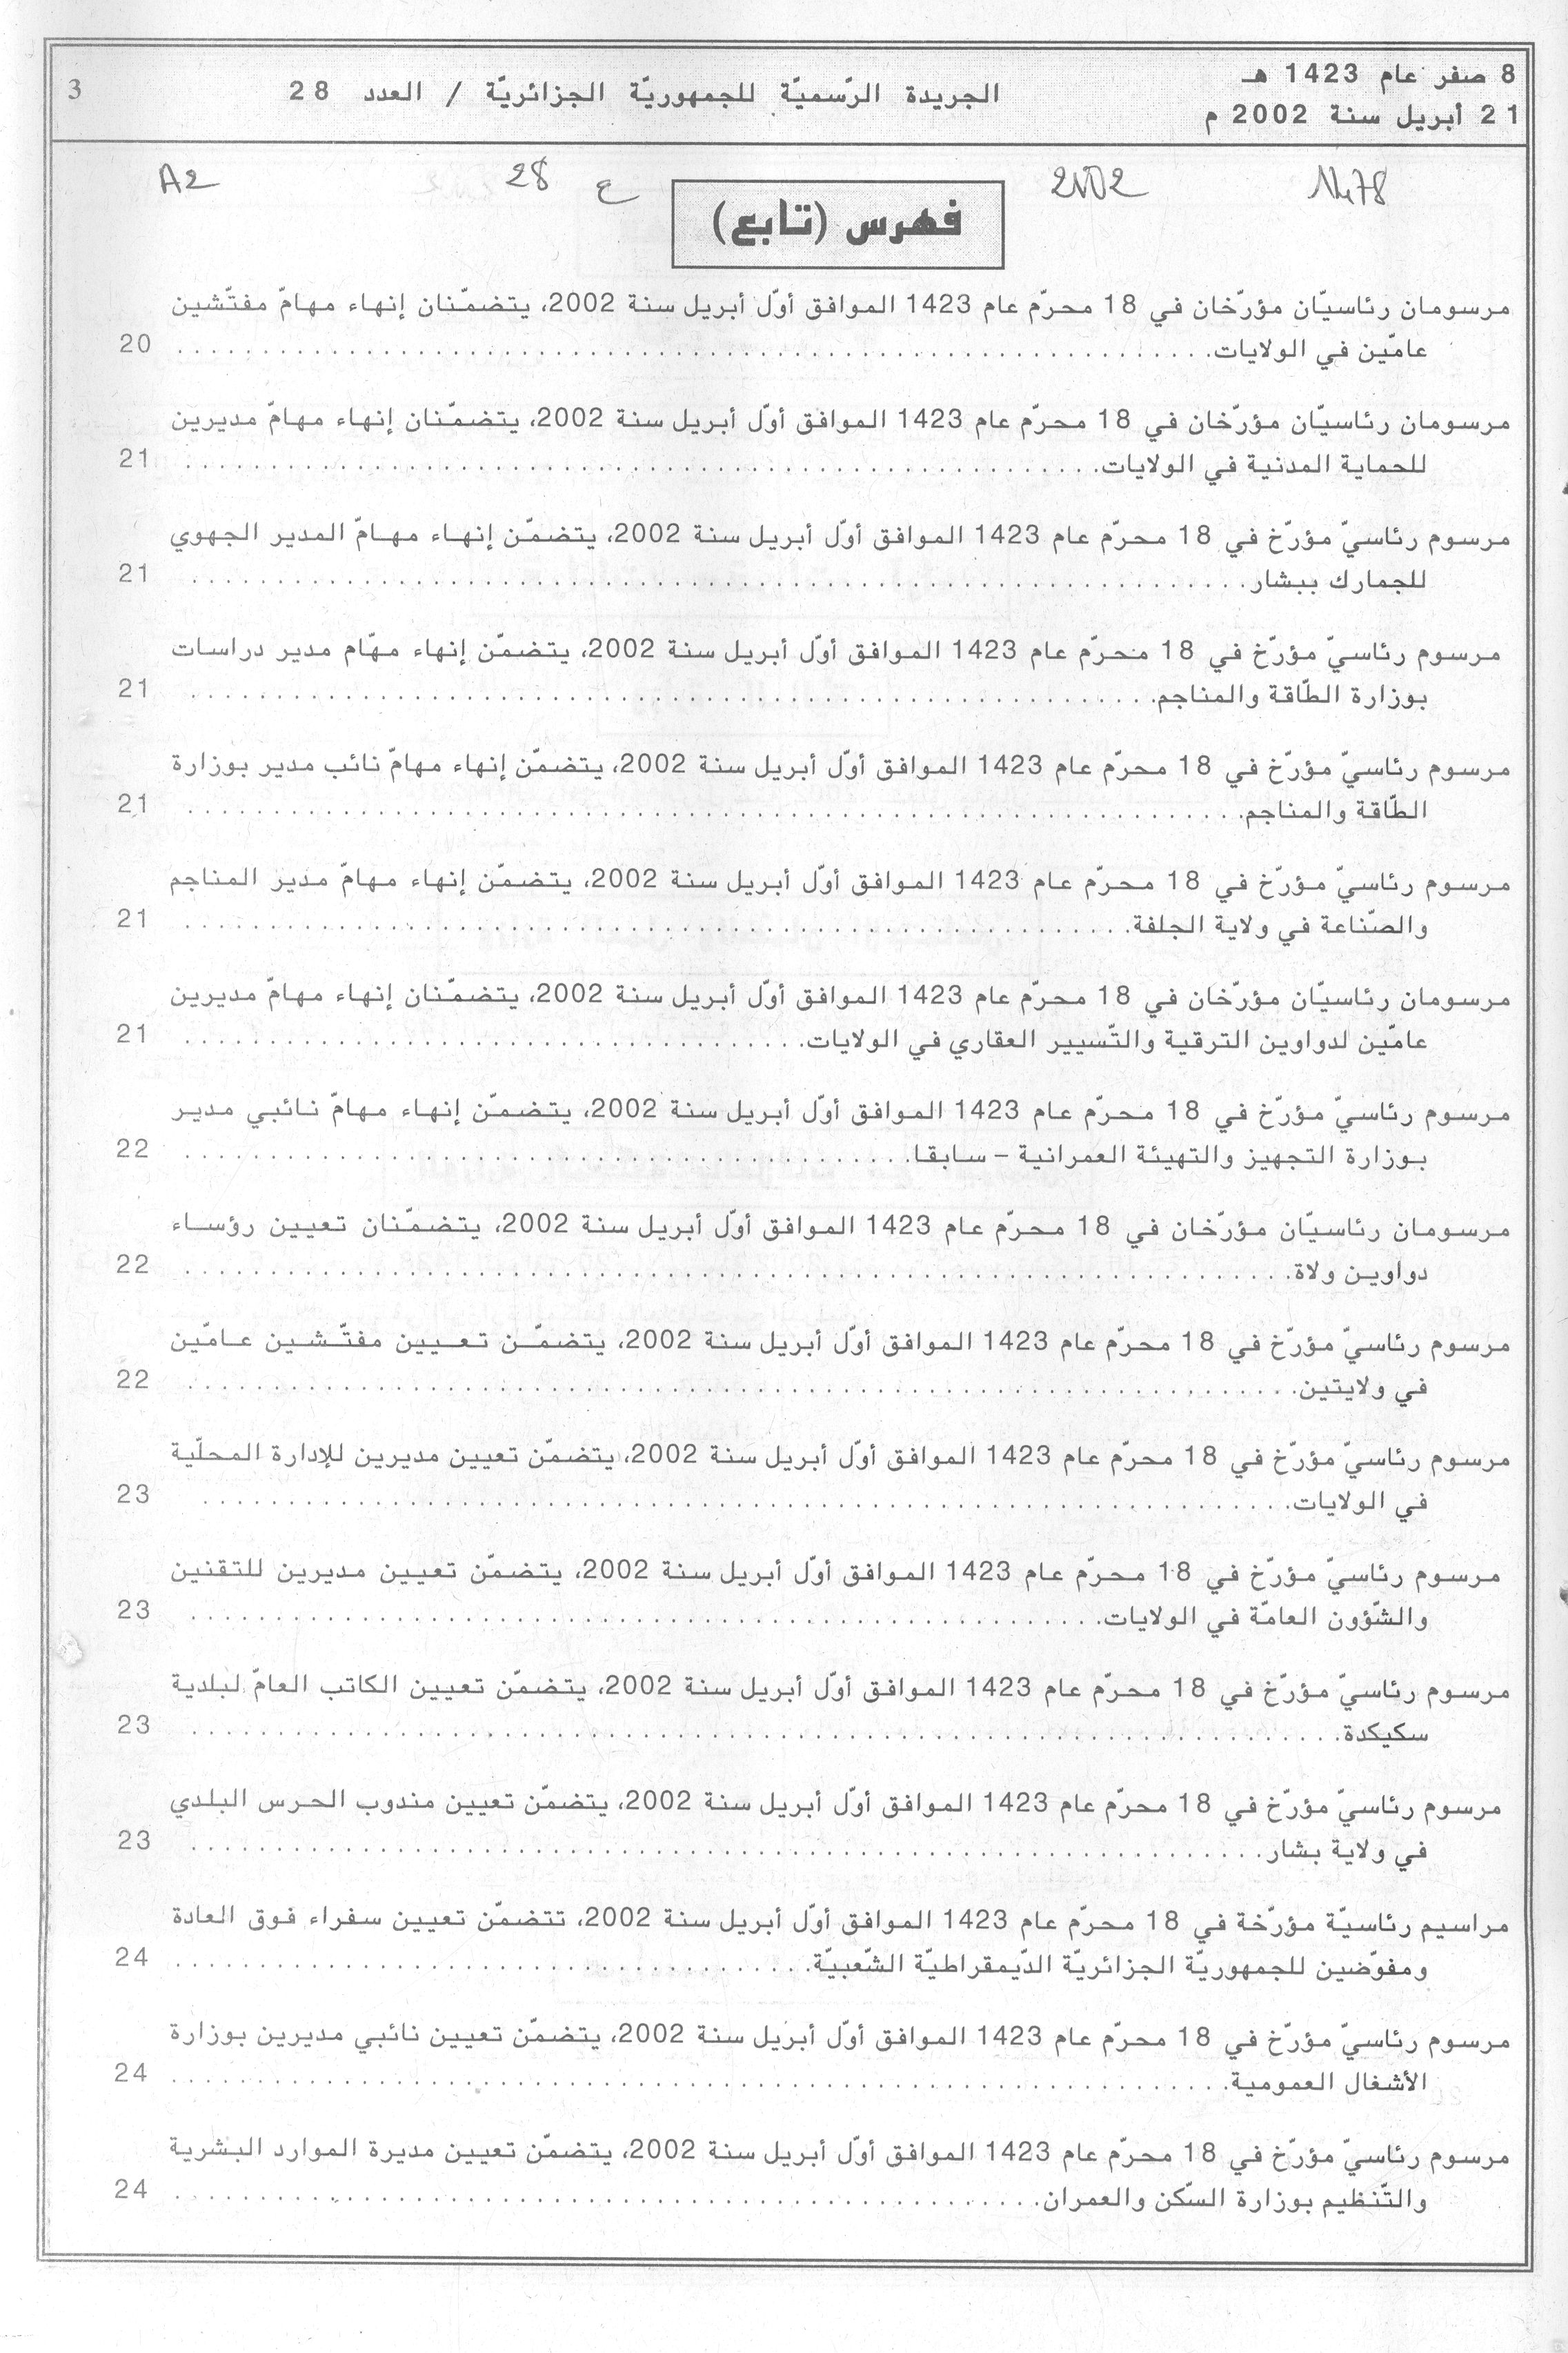 8 صفر عام 1423 هـ
21 أبريل سنة 2002 م
الجريدة الرّسميّة للجمهوريّة الجزائريّة / العدد 28
3
2002
ع 28
A2
فهرس (تابع)
مرسومان رئاسيّان مؤرّخان في 18 محرّم عام 1423 الموافق أوّل أبريل سنة 2002، يتضمّنان إنهاء مهامّ مفتّشين
عامّين في الولايات. . . . . . . . . . 20
مرسومان رئاسيّان مؤرّخان في 18 محرّم عام 1423 الموافق أوّل أبريل سنة 2002، يتضمّنان إنهاء مهامّ مديرين
للحماية المدنية في الولايات. . . . . . . . . . 21
مرسوم رئاسيّ مؤرّخ في 18 محرّم عام 1423 الموافق أوّل أبريل سنة 2002، يتضمّن إنهاء مهامّ المدير الجهوي
للجمارك ببشار. . . . . . . . . . 21
مرسوم رئاسيّ مؤرّخ في 18 محرّم عام 1423 الموافق أوّل أبريل سنة 2002، يتضمّن إنهاء مهّام مدير دراسات
بوزارة الطّاقة والمناجم. . . . . . . . . . 21
مرسوم رئاسيّ مؤرّخ في 18 محرّم عام 1423 الموافق أوّل أبريل سنة 2002، يتضمّن إنهاء مهامّ نائب مدير بوزارة
الطّاقة والمناجم. . . . . . . . . . 21
مرسوم رئاسيّ مؤرّخ في 18 محرّم عام 1423 الموافق أوّل أبريل سنة 2002، يتضمّن إنهاء مهامّ مدير المناجم
والصّناعة في ولاية الجلفة. . . . . . . . . . 21
مرسومان رئاسيّان مؤرّخان في 18 محرّم عام 1423 الموافق أوّل أبريل سنة 2002، يتضمّنان إنهاء مهامّ مديرين
عامّين لدواوين الترقية والتّسيير العقاري في الولايات. . . . . . . . . . 21
مرسوم رئاسيّ مؤرّخ في 18 محرّم عام 1423 الموافق أوّل أبريل سنة 2002، يتضمّن إنهاء مهامّ نائبي مدير
بوزارة التجهيز والتهيئة العمرانية – سابقا. . . . . . . . . . 22
مرسومان رئاسيّان مؤرّخان في 18 محرّم عام 1423 الموافق أوّل أبريل سنة 2002، يتضمّنان تعيين رؤساء
دواوين ولاة. . . . . . . . . . 22
مرسوم رئاسيّ مؤرّخ في 18 محرّم عام 1423 الموافق أوّل أبريل سنة 2002، يتضمّن تعيين مفتّشين عامّين
في ولايتين. . . . . . . . . . 22
مرسوم رئاسيّ مؤرّخ في 18 محرّم عام 1423 الموافق أوّل أبريل سنة 2002، يتضمّن تعيين مديرين للإدارة المحلّية
في الولايات. . . . . . . . . . 23
مرسوم رئاسيّ مؤرّخ في 18 محرّم عام 1423 الموافق أوّل أبريل سنة 2002، يتضمّن تعيين مديرين للتقنين
والشّؤون العامّة في الولايات. . . . . . . . . . 23
مرسوم رئاسيّ مؤرّخ في 18 محرّم عام 1423 الموافق أوّل أبريل سنة 2002، يتضمّن تعيين الكاتب العامّ لبلدية
سكيكدة. . . . . . . . . . 23
مرسوم رئاسيّ مؤرّخ في 18 محرّم عام 1423 الموافق أوّل أبريل سنة 2002، يتضمّن تعيين مندوب الحرس البلدي
في ولاية بشار. . . . . . . . . . 23
مراسيم رئاسيّة مؤرّخة في 18 محرّم عام 1423 الموافق أوّل أبريل سنة 2002، تتضمّن تعيين سفراء فوق العادة
ومفوّضين للجمهوريّة الجزائريّة الدّيمقراطيّة الشّعبيّة. . . . . . . . . . 24
مرسوم رئاسيّ مؤرّخ في 18 محرّم عام 1423 الموافق أوّل أبريل سنة 2002، يتضمّن تعيين نائبي مديرين بوزارة
الأشغال العمومية. . . . . . . . . . 24
مرسوم رئاسيّ مؤرّخ في 18 محرّم عام 1423 الموافق أوّل أبريل سنة 2002، يتضمّن تعيين مديرة الموارد البشرية
والتّنظيم بوزارة السّكن والعمران. . . . . . . . . . 24